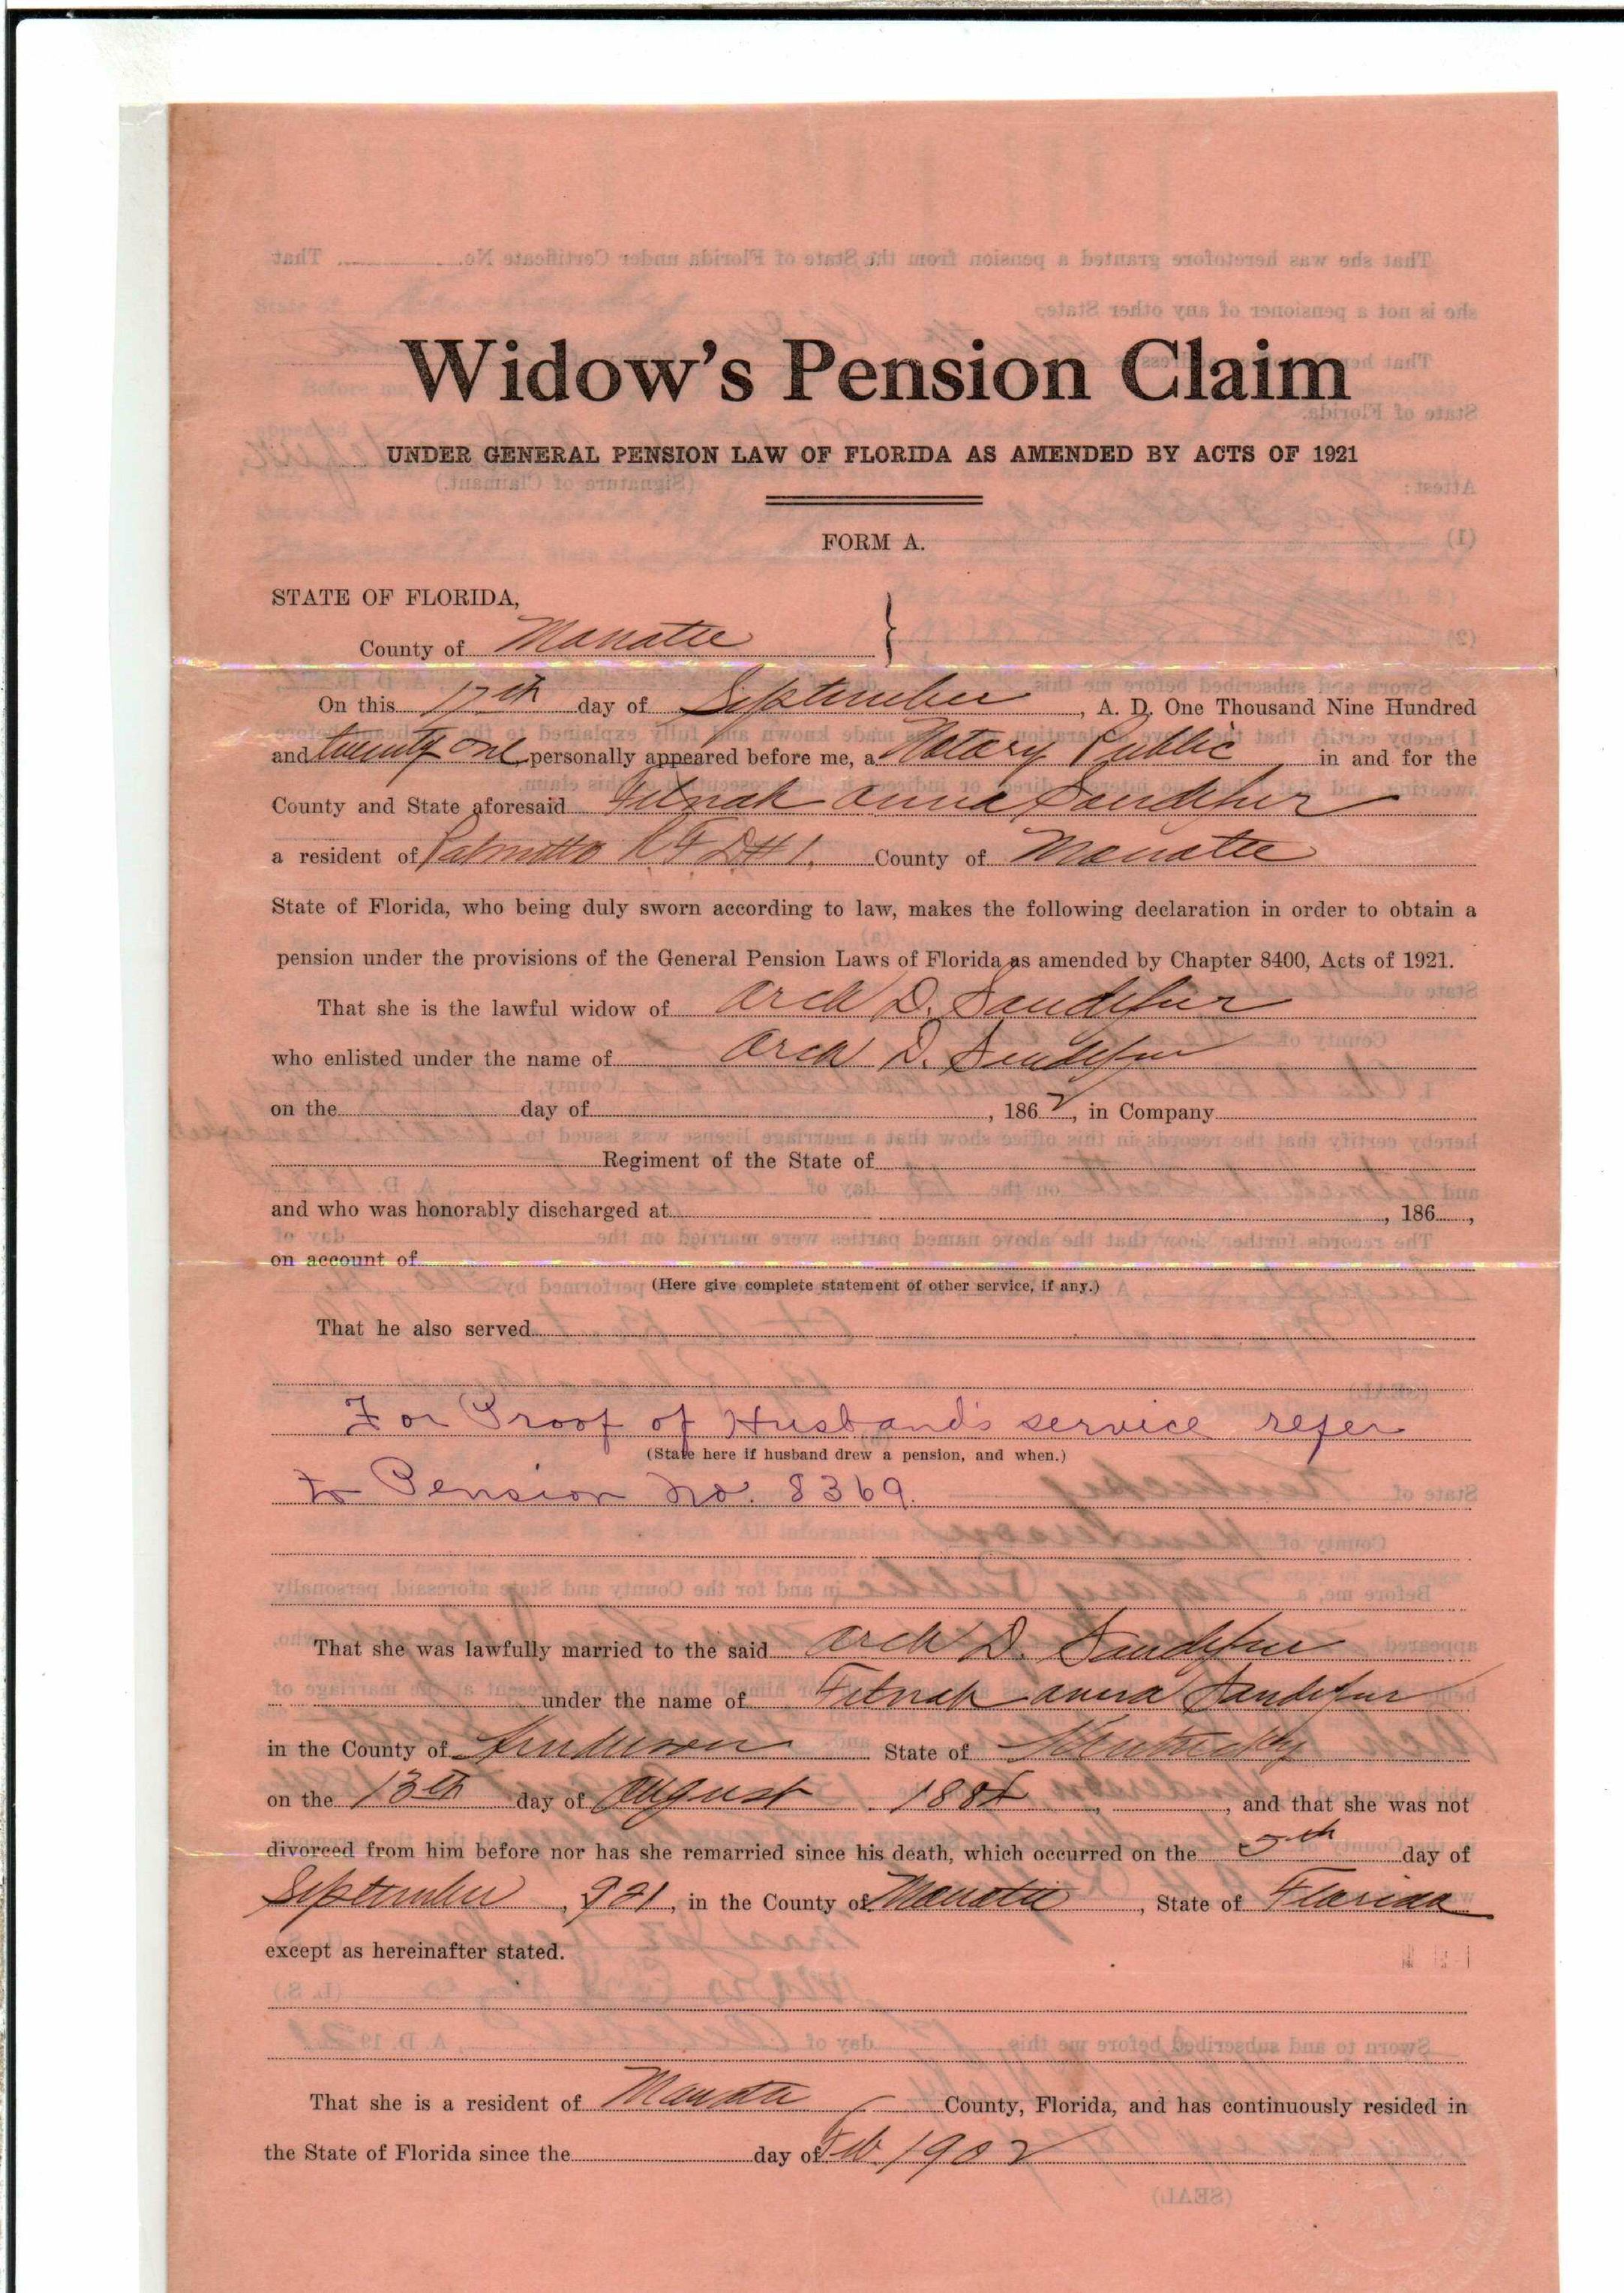 Widow's Pension Claim
UNDER GENERAL PENSION LAW OF FLORIDA AS AMENDED BY ACTS OF 1921
FORM A.
STATE OF FLORIDA,
County of Manatee
On this 17th day of September, A. D. One Thousand Nine Hundred
and twenty one personally appeared before me, a Notary Public in and for the
County and State aforesaid Fitnah Anna Sandefur
a resident of Palmetto R F D # 1. County of Manatee
State of Florida, who being duly sworn according to law, makes the following declaration in order to obtain a
pension under the provisions of the General Pension Laws of Florida as amended by Chapter 8400, Acts of 1921.
That she is the lawful widow of Arch D. Sandefur
who enlisted under the name of Arch D. Sandefur
on the day of , 1862, in Company
Regiment of the State of
and who was honorably discharged at , 186 ,
on account of
(Here give complete statement of other service, if any.)
That he also served
For Proof of Husband's service refer
(State here if husband drew a pension, and when.)
to Pension No. 8369.
That she was lawfully married to the said Arch D. Sandefur
under the name of Fitnah Anna Sandefur
in the County of Henderson State of Kentucky
on the 13th day of August 188 , , and that she was not
divorced from him before nor has she remarried since his death, which occurred on the day of
September, 921, in the County of Manatee, State of Florida
except as hereinafter stated.
That she is a resident of Manatee County, Florida, and has continuously resided in
the State of Florida since the day of Feb 1902